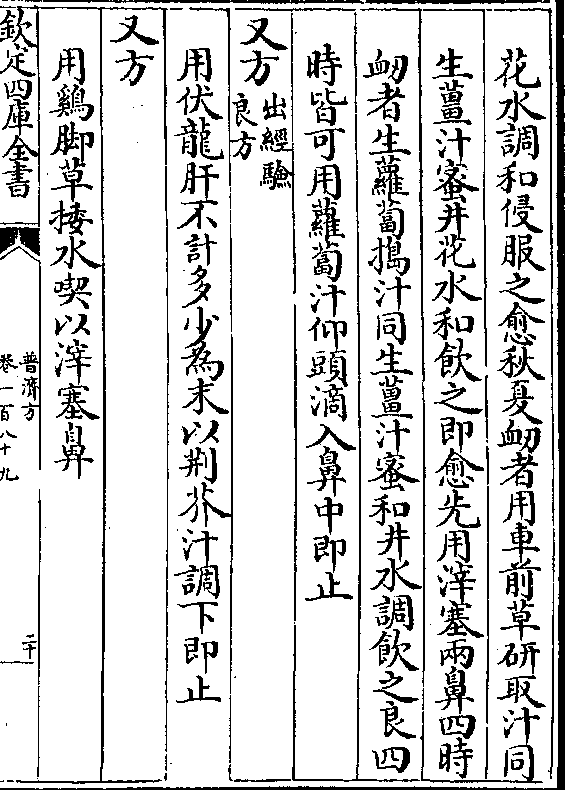 花水調和侵服之愈秋夏衂者用車前草研取汁同
生薑汁蜜井花水和飲之即愈先用滓塞兩鼻四時
衂者生蘿蔔搗汁同生薑汁蜜和井水調飲之良四
時皆可用蘿蔔汁仰頭滴入鼻中即止
又方出經驗
良方
用伏龍肝不計多少為末以荆芥汁調下即止
又方
用鷄脚草捼水喫以滓塞鼻
欽定四庫全書
普濟方
卷一百八十九
二十